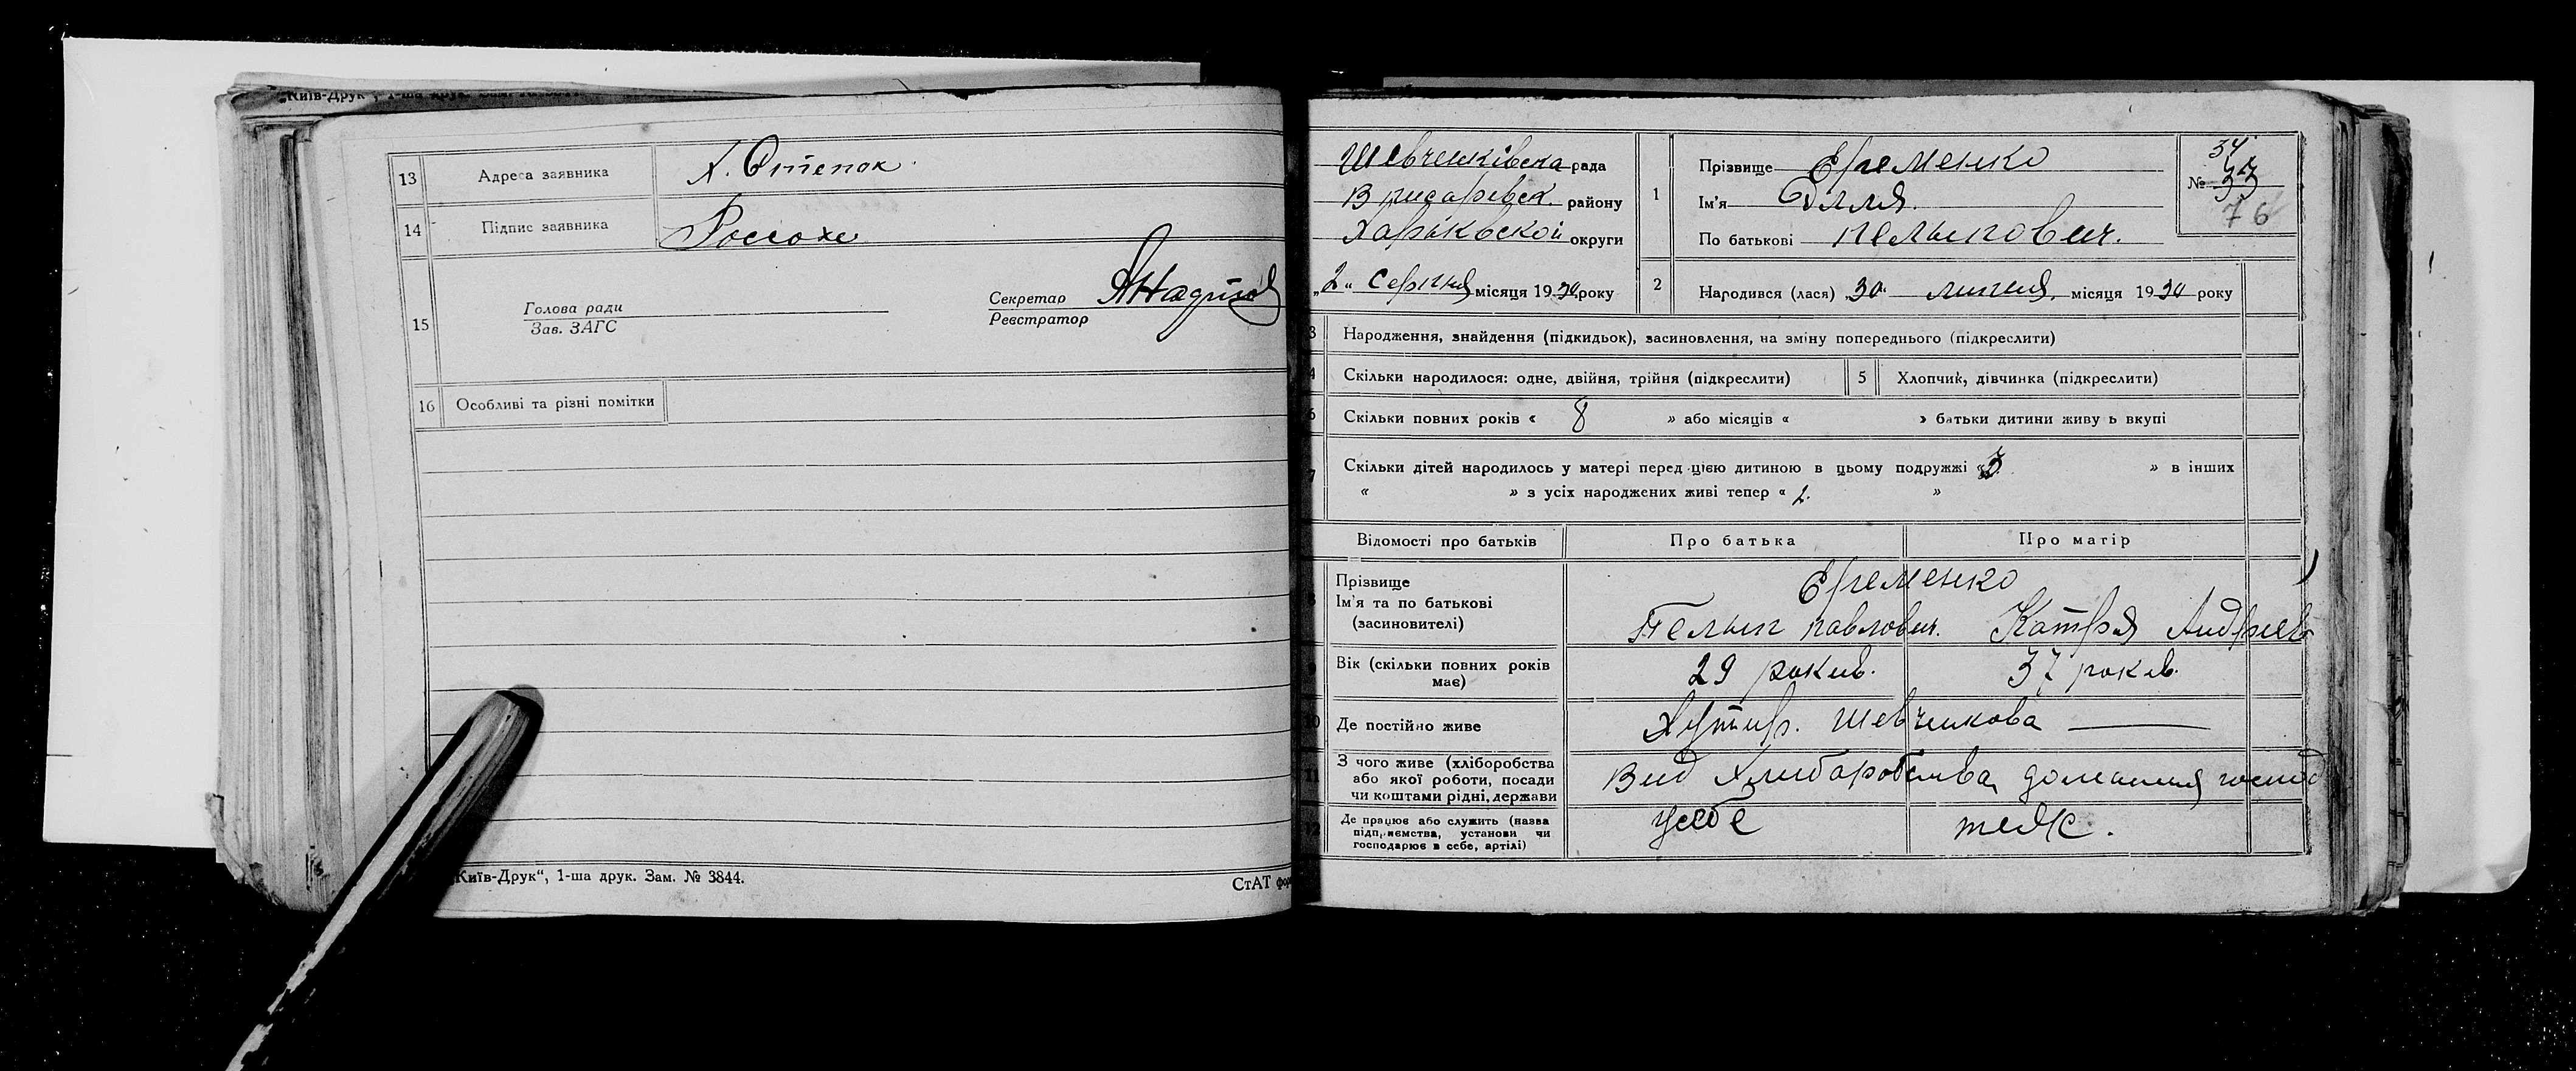 „Київ-Друк", 1-ша друк.
13 Адреса заявника Х. Отпепок
14 Підпис заявника Россоха
15 Голова ради
Зав. ЗАГС
Секретар
Реєстратор
16 Особливі та різні помітки
„Київ-Друк“, 1-ша друк. Зам. № 3844.
СтАТ фор
Шевченківска рада
района
району
Харьковской округи
„2“ серпня місяця 1930 року
1 Прізвище Еременко
Ім'я Элля
По батькові Пелыпович.
34
№ 33
76
2 Народився (лася) „30“ липня місяця 1930 року
3 Народження, знайдення (підкидьок), засиновлення, на зміну попереднього (підкреслити)
4 Скільки народилося: одне, двійня, трійня (підкреслити) 5 Хлопчик, дівчинка (підкреслити)
6 Скільки повних років « 8 » або місяців « » батьки дитини живу ь вкупі
7 Скільки дітей народилось у матері перед цією дитиною в цьому подружжі «3 » в інших
« » з усіх народжених живі тепер « 2. »
Відомості про батьків Про батька Про матір
8 Прізвище
Ім'я та по батькові
(засиновителі)
Еременко
Пелып павлович. Катря Андреев
9 Вік (скільки повних років
має)
29 рокив. 37 рокив.
10 Де постійно живе Хутир. Шевченкова
11 З чого живе (хліборобства
або якої роботи, посади
чи коштами рідні, держави
Вид Хлибаробства домашня господ
12 Де працює або служить (назва
підприємства, установи чи
господарює в себе, артілі)
усебе теж.